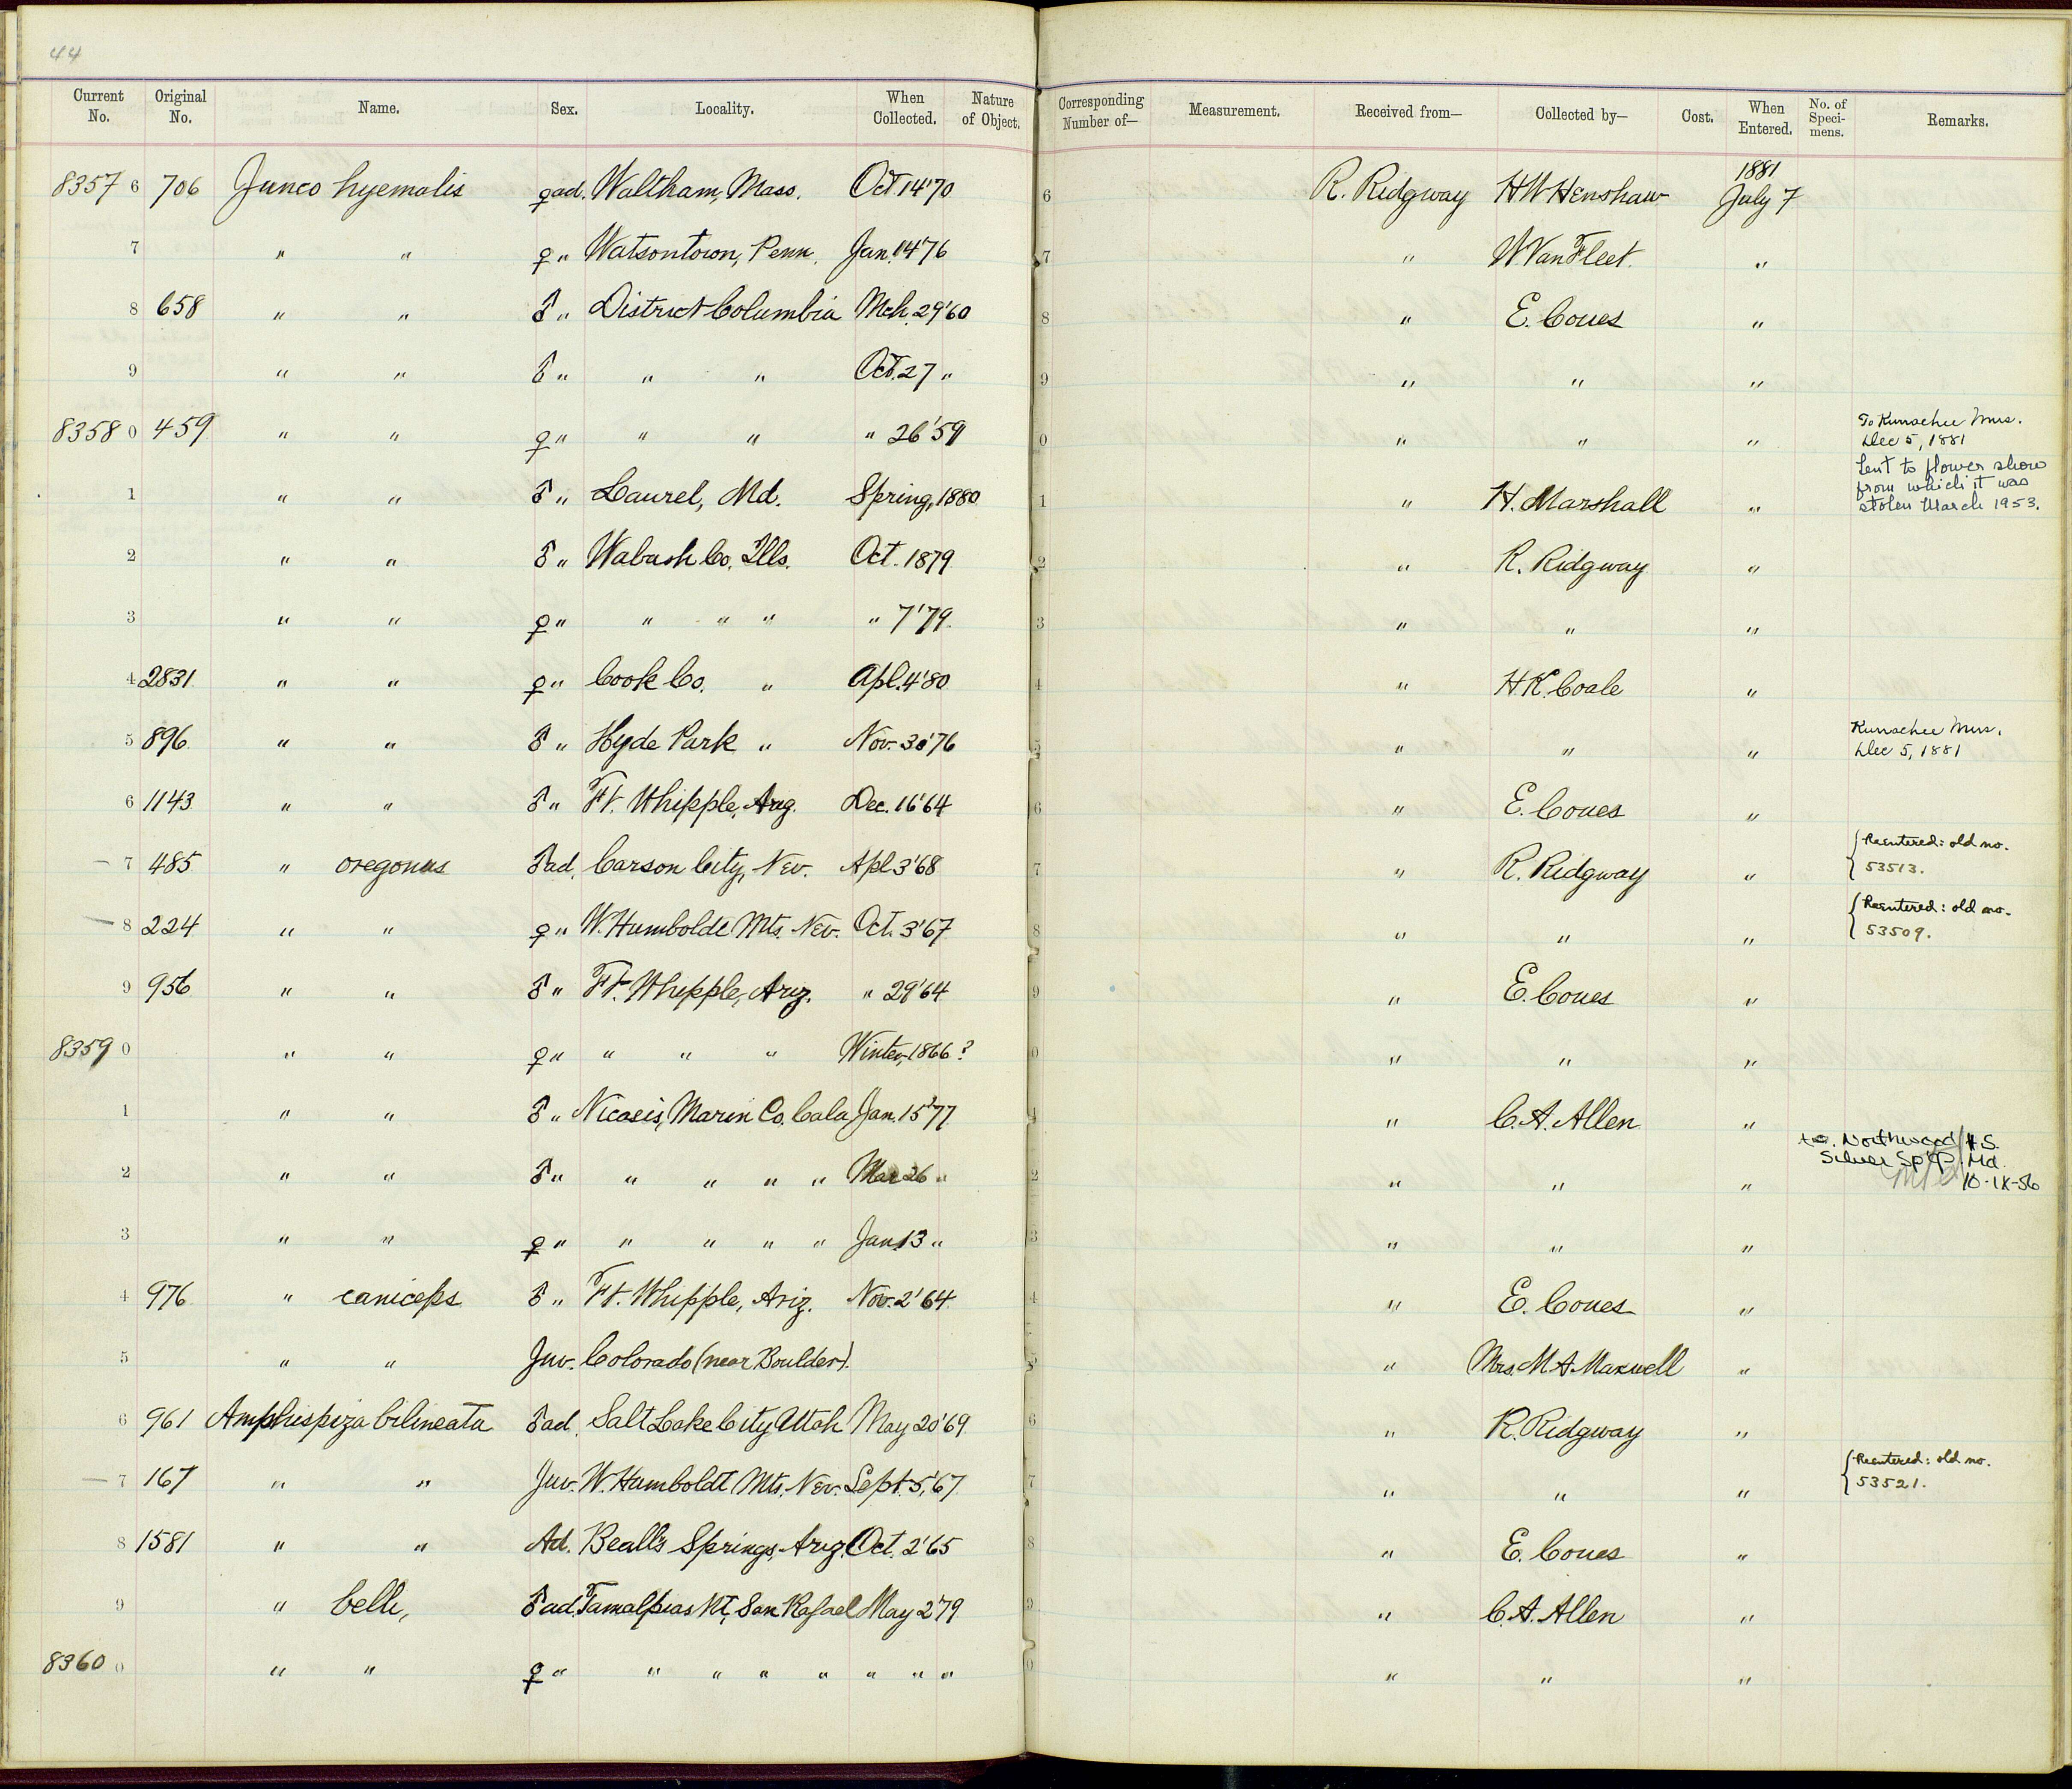 44
Current No. Original No. Name. Sex. Locality. When Collected. Nature of Object. Corresponding Number of— Measurement. Received from— Collected by— Cost. When Entered. No. of Specimens. Remarks.
8357 6 706 Junco hyemalis ♀ ad. Waltham, Mass. Oct 14'70 6 R. Ridgway H W Henshaw 1881 July 7
7 " " ♀ " Watsontown, Penn. Jan. 14'76 7 " W. Van Fleet. "
8 658 " " ♂ " District Columbia Mch. 29'60 8 " E. Coues "
9 " " ♂ " " " Oct. 27 " 9 " " "
8358 0 459 " " ♀ " " " " 26'59 0 " " " To Kurrachee Mus. Dec 5, 1881
1 " " ♂ " Laurel, Md. Spring, 1880 1 " H. Marshall " Lent to flower show from which it was stolen March 1953.
2 " " ♂ " Wabash Co. Ills. Oct. 1879 2 " R. Ridgway "
3 " " ♀ " " " " " 7'79. 3 " " "
4 2831 " " ♀ " Cook Co. " Apl. 4'80 4 " H.K. Coale "
5 896 " " ♂ " Hyde Park " Nov. 30'76 5 " " " Kurrachee Mus. Dec 5, 1881
6 1143 " " ♂ " Ft. Whipple, Ariz. Dec. 16'64 6 " E. Coues "
— 7 485 " oregonus ♂ ad. Carson City, Nev. Apl 3'68 7 " R. Ridgway " Reentered: old no. 53513.
— 8 224 " " ♀ " W. Humboldt Mts. Nev. Oct. 3'67 8 " " " Reentered: old no. 53509.
9 956 " " ♂ " Ft. Whipple, Ariz. " 29'64 9 " E. Coues "
8359 0 " " ♀ " " " " Winter, 1866? 0 " " "
1 " " ♂ " Nicasis, Marin Co. Cala, Jan. 15'77 1 " C. A. Allen "
2 " " ♂ " " " " " Mar 26 " 2 " " " to. Northwood H S. Silver Sp'g Md. 10-IX-56
3 " " ♀ " " " " " Jan. 13 " 3 " " "
4 976 " caniceps ♂ " Ft. Whipple, Ariz. Nov. 2'64 4 " E. Coues "
5 " " Juv. Colorado (near Boulder). 5 " Mrs. M A Maxwell "
6 961 Amphispiza bilineata ♂ ad. Salt Lake City, Utah May 20'69 6 " R. Ridgway "
— 7 167 " " Juv. W. Humboldt Mts. Nev. Sept. 5,'67 7 " " " Reentered: old no. 53521.
8 1581 " " Ad. Beall's Springs, Ariz. Oct. 2'65 8 " E. Coues "
9 " belli, ♂ ad. Tamalpias Mt, San Rafael May 2'79 9 " C. A. Allen "
8360 0 " " ♀ " " " " " " " " 0 " " "